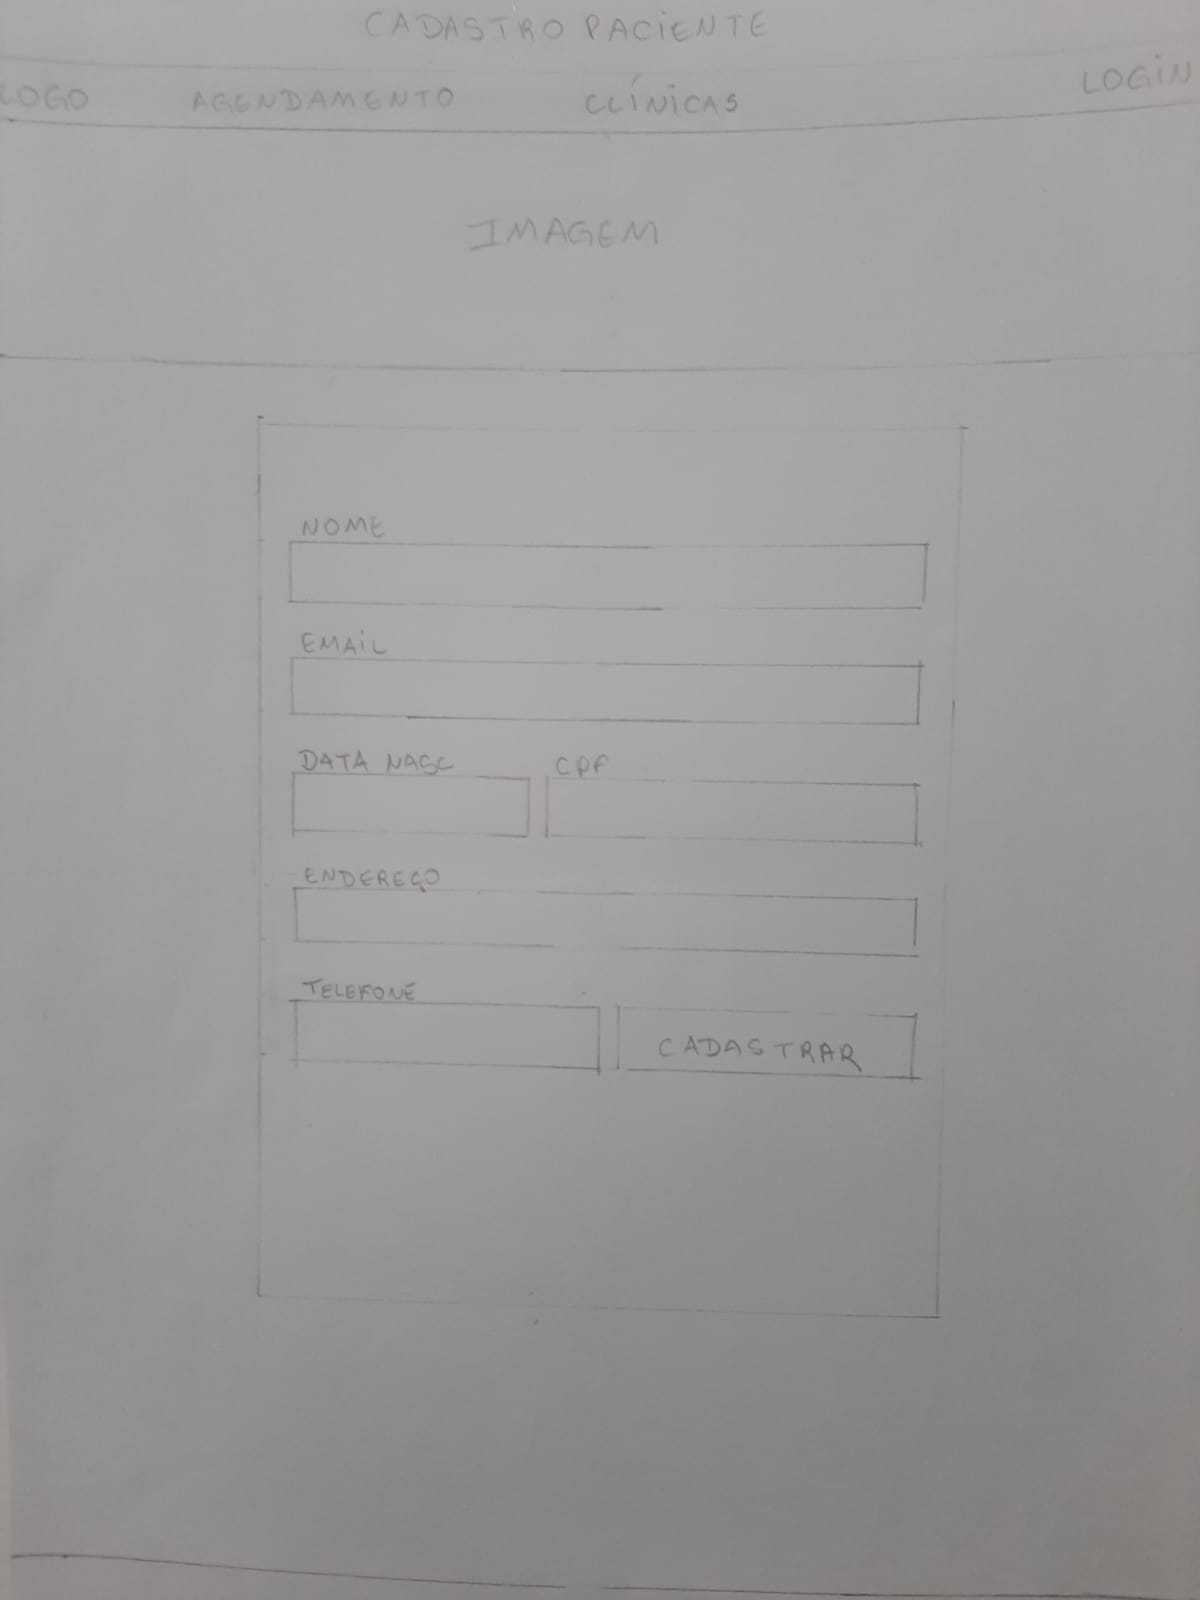 CADASTRO PACIENTE
LOGO AGENDAMENTO CLÍNICAS LOGIN
IMAGEM
NOME
EMAIL
DATA NASC CPF
ENDEREÇO
TELEFONE
CADASTRAR